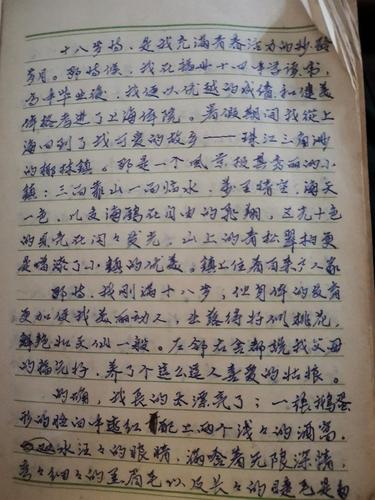 十八岁时，是我充满青春活力的妙龄
岁月。那时候，我在福州十四中学读书，
高中毕业后，我便以优越的成绩和健美
体格考进了上海体院。暑假期间我从上
海回到了我可爱的故乡——珠江三角洲
的榔林镇。那是一个风景极其秀丽的小
镇：三面靠山一面临水，万里晴空，海天
一色，几支海鸥在自由的飞翔，五光十色
的贝壳在闪々发光，山上的青松翠柏更
是增添了小镇的优美。镇上住着百来户人家
那时，我刚满十八岁，但身体的发育
更加使我美丽动人，坐落得好似桃花，
鲜艳如天仙一般。左邻右舍都说我父母
的福气好，养了个这么逗人喜爱的姑娘。
的确，我长的太漂亮了；一张鹅蛋
形的脸白中透红配上两个浅々的酒窝。
水汪々的眼睛，满含着无限深情，
弯々细々的黑眉毛以及长々的睫毛是